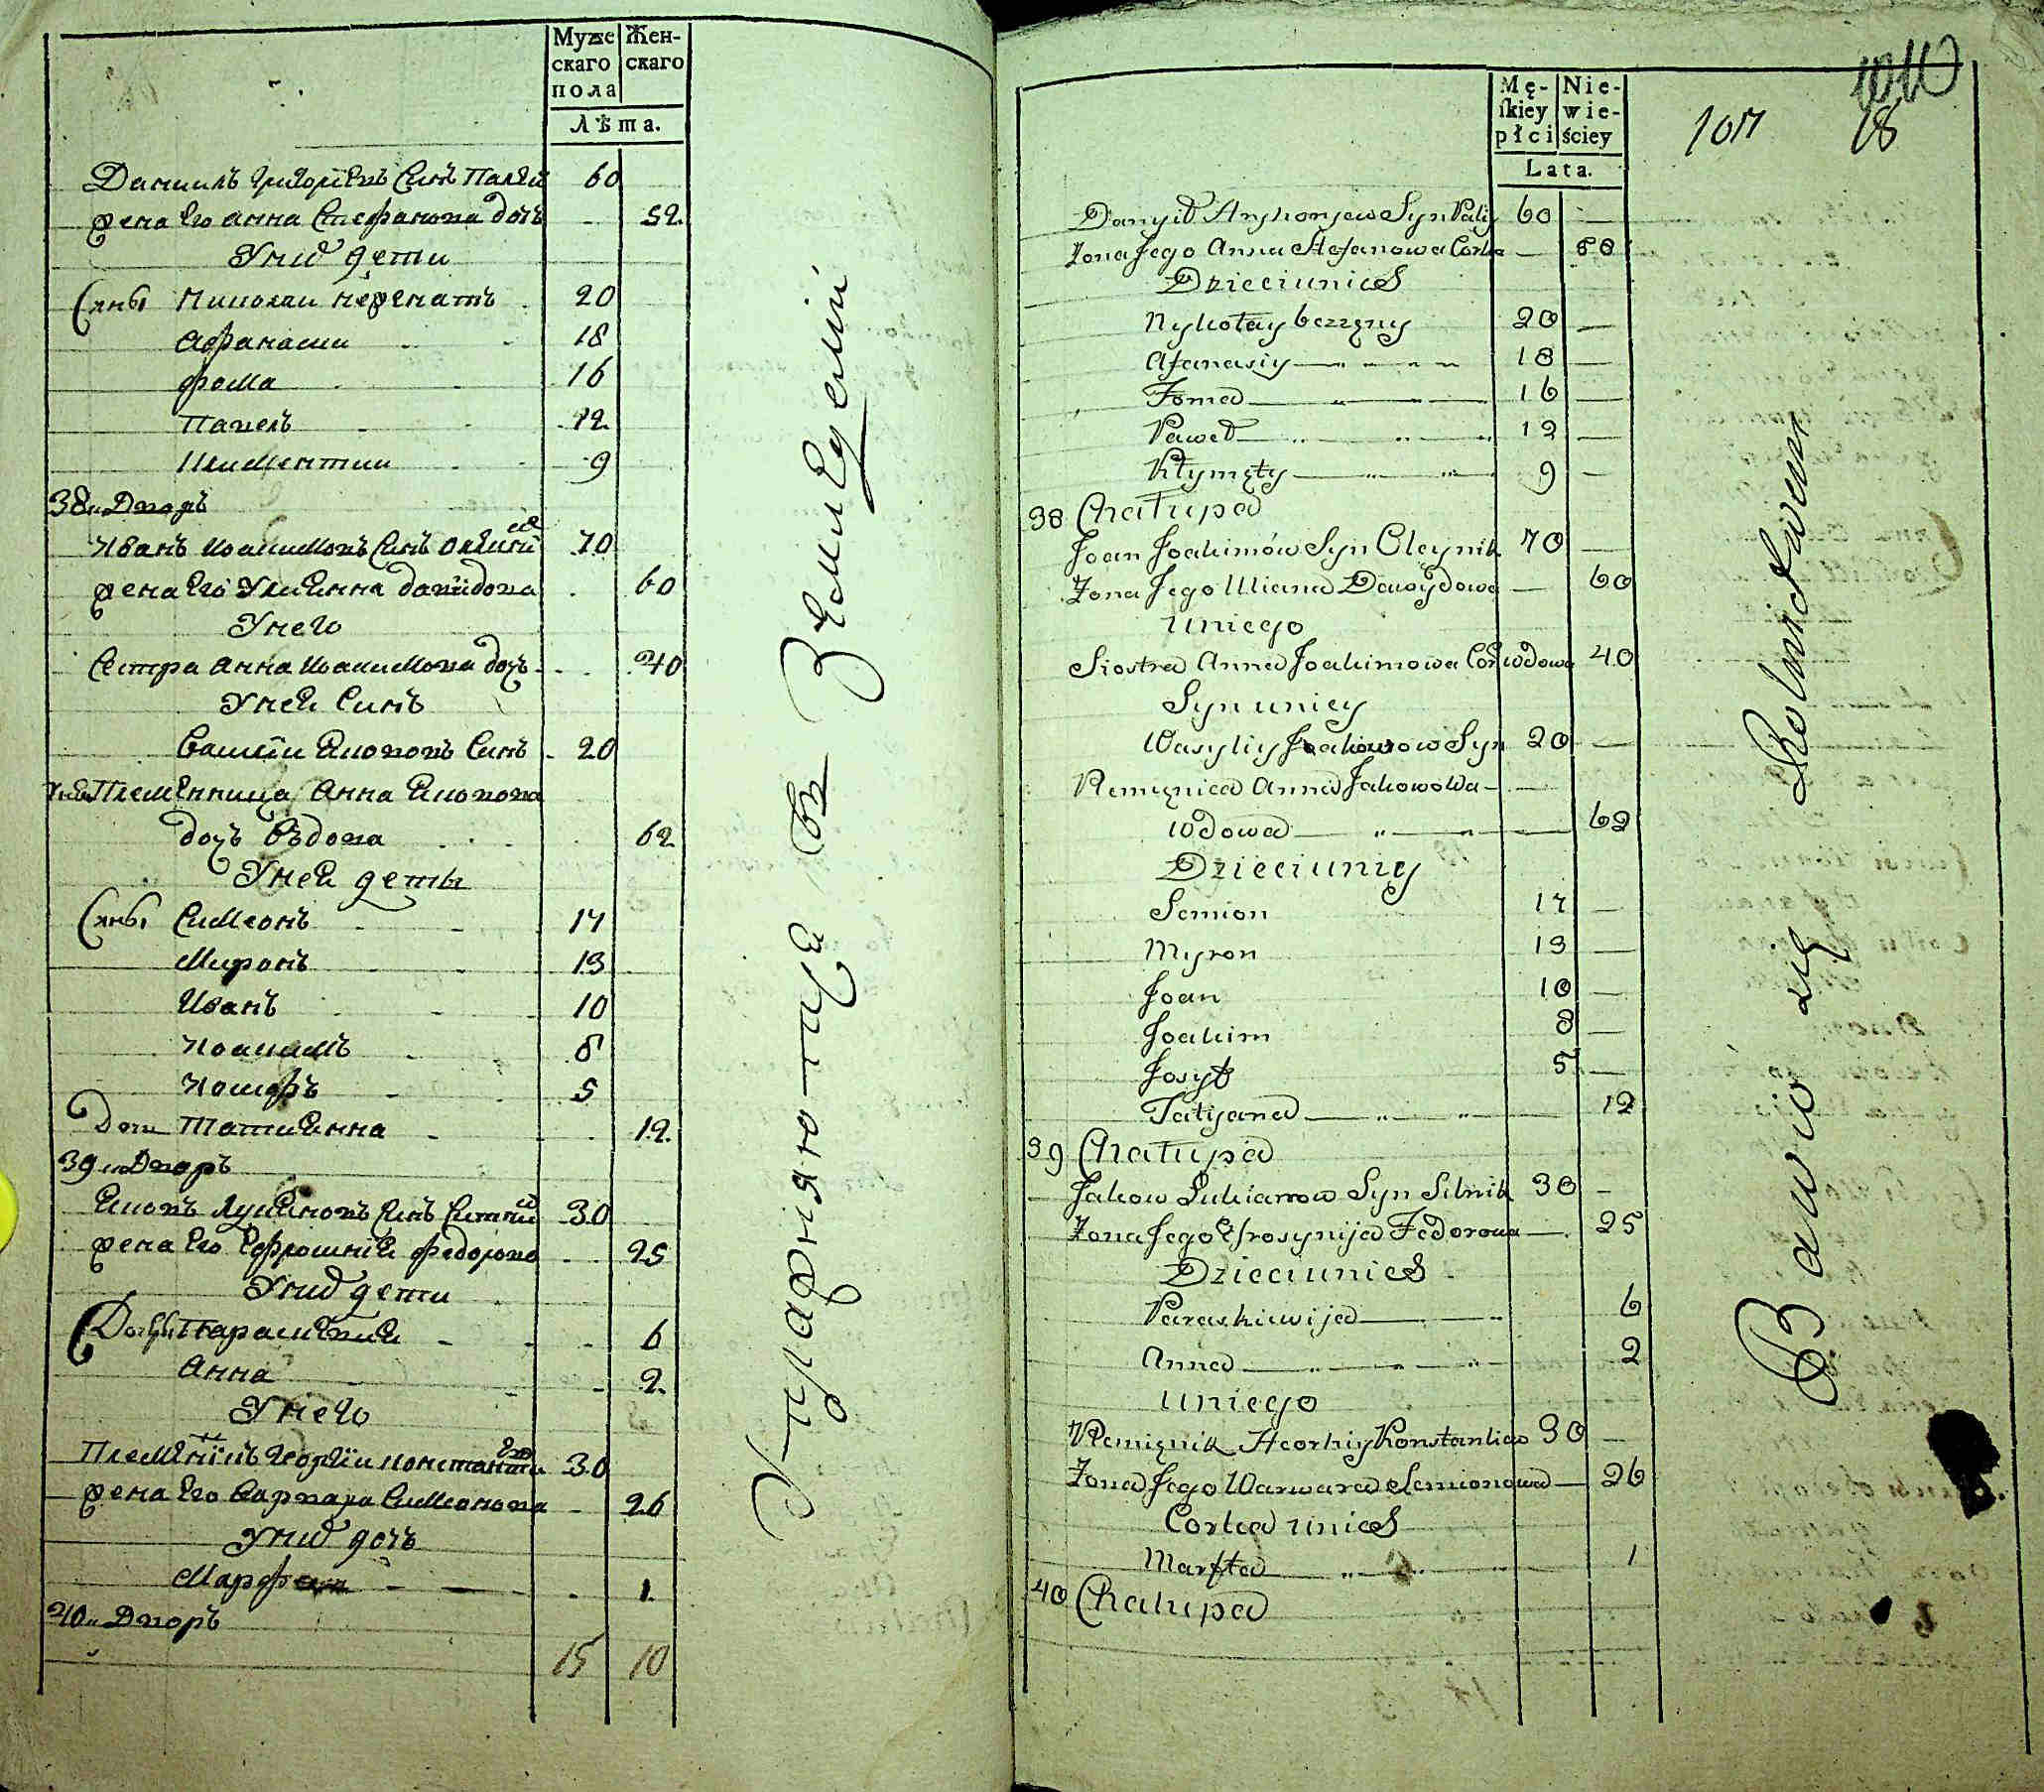 Муже Жен-
скаго скаго
пола
Лѣта.
Даниилъ Григорїевъ Синъ Палѣй 60
жена Его анна Стефанова дочъ - 52.
Уних дети
Сыны Николаи нежематъ 20
Афанасии 18
фома 16
Павелъ 12
Климентии 9
38и Дворъ
Иванъ Иоакимовъ Синъ олѣйни 70
жена Его Улиянна давидова 60
У него
Сестра анна Иоакимова дочъ 40
У ней Синъ
Василїи Яковов Синъ 20
У ней Племянница Анна Яковова
дочъ вьдова 62
У ней деты
Сыны Симеонъ 17
Миронъ 13
Иванъ 10
Иоакимъ 8
Иосифъ 5
Дочи Татиянна 12.
39и Дворъ
Яковъ Лукяновъ Синъ Ситни 30
жена Его Ефросинїя федорова 25
Уних дети
Дочери Параскевия 6
Анна 2.
У него
Племянїкъ Георгїи константи 30
жена Его Варвара Симеонова 26
Уних дочъ
Марфа 1.
40и Дворъ
15 10
Упражняются въ Земледелїи
Mę- Nie-
ſkiey wie-
płci ściey
Lata.
107
1010
18
Danyił Aryhorjew Syn Palij 60 —
Zona Jego Anna Stefanowa Corka — 50
Dzieci u nich
Nykołay bezzęny 20 —
Afanasiy 18 —
Foma 16 —
Paweł 12 —
Kłymęty 9 —
38 Chałupa
Joan Joakimów Syn Oleynik 70 —
Zona Jego Uliana Dawydowa — 60
u niego
Siostra Anna Joakimowa Cor wdowa 40
Syn u niey
Wasyliy Jakowow Syn 20 —
Plemięnica Anna Jakowowa — —
wdowa — 62
Dzieci u niey
Semion 17 —
Myron 13 —
Joan 10 —
Joakim 8 —
Josyf 5 —
Tatijana — 12
39 Chałupa
Jakow Lukianow Syn Sitnik 30 —
Zona Jego Efrosynija Fedorowa — 25
Dzieci u nich
Paraskiewija 6
Anna 2
u niego
Plemięnik Heorhiy Konstantiew 30 —
Zona Jego Warwara Semionowa — 26
Corka u nich
Marfta 1
40 Chałupa
Bawio się Rolnictwem